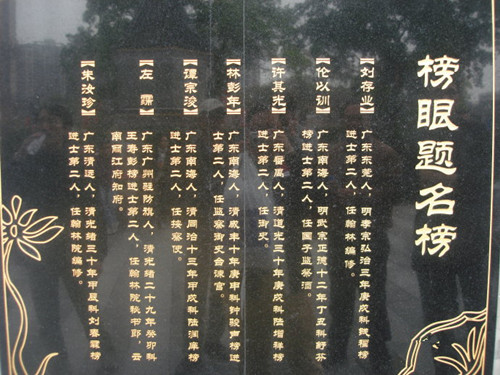 榜眼题名榜
【刘存业】广东东莞人，明孝宗弘治三年庚戌科钱福榜
进士第二人，任翰林编修。
【伦以训】广东南海人，明武宗正德十二年丁丑科舒芬
榜进士第二人，任国子监祭酒。
【许其光】广东番禺人，清道光三十年庚戌科陆增祥榜
进士第二人，任御史。
【林彭年】广东南海人，清咸丰十年庚申科钟骏声榜进
士第二人，任监察御史给谏官。
【谭宗浚】广东南海人，清同治十三年甲戌科陆润庠榜
进士第二人，任按察使。
【左霈】广东广州驻防旗人，清光绪二十九年癸卯科
王寿彭榜进士第二人，任翰林院秘书郎、云
南丽江府知府。
【朱汝珍】广东清远人，清光绪三十年甲辰科刘春霖榜
进士第二人，任翰林院编修。